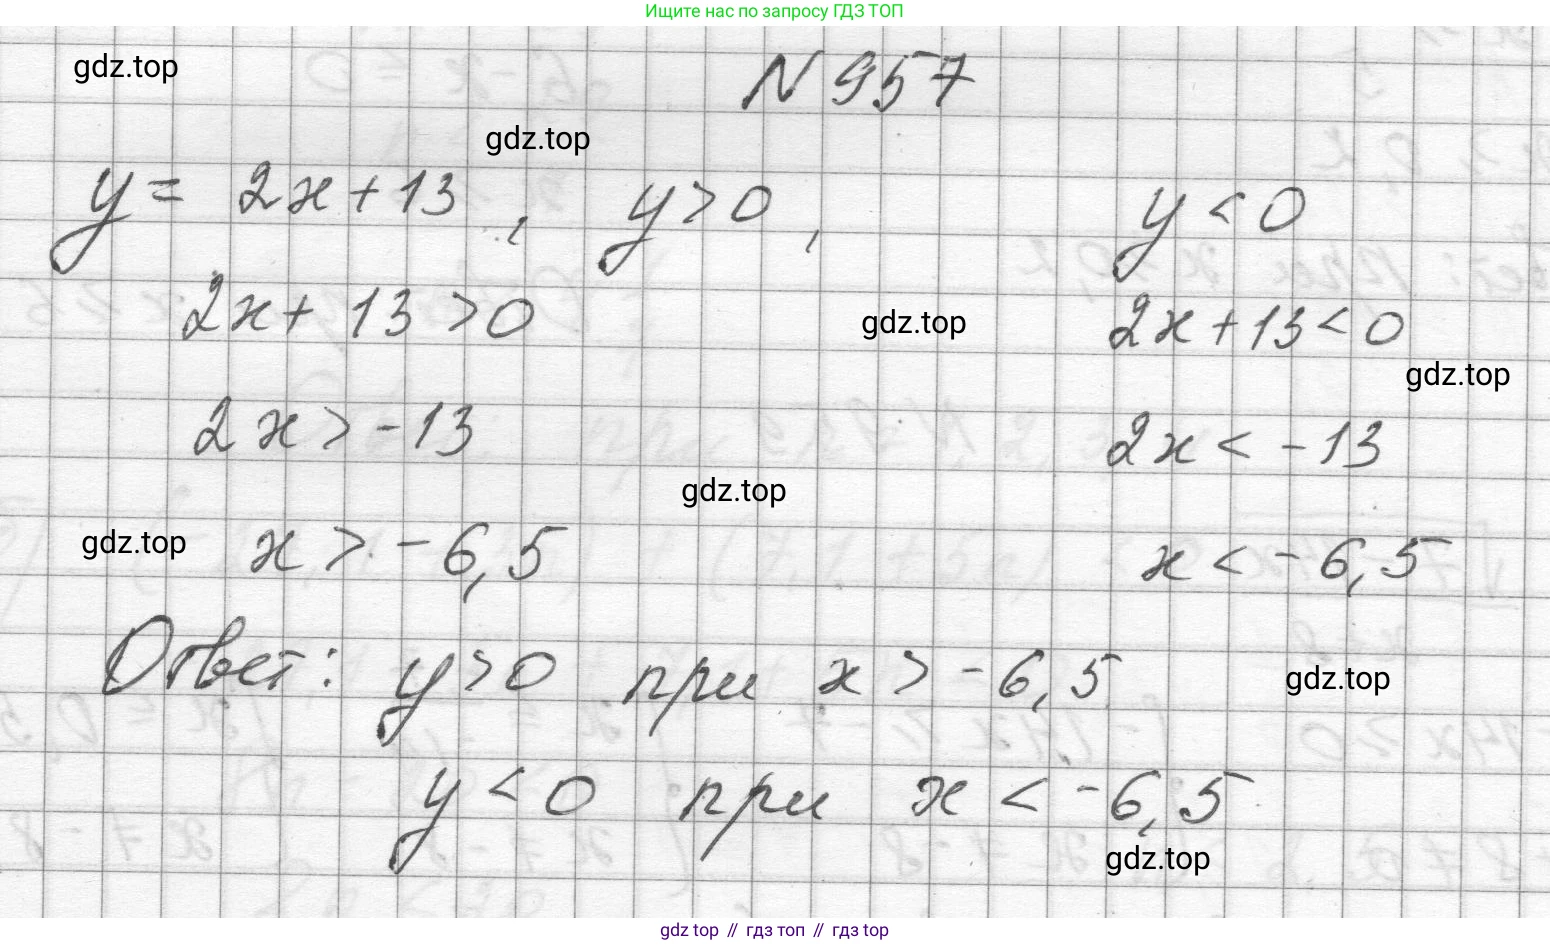 Ищите нас по запросу ГДЗ ТОП
gdz.top
N 957
gdz.top
y = 2x + 13 , y > 0 , y < 0
2x + 13 > 0 2x + 13 < 0
gdz.top
gdz.top
2x > -13 2x < -13
gdz.top
gdz.top
x > -6,5 x < -6,5
Ответ: y > 0 при x > -6,5
gdz.top
y < 0 при x < -6,5
gdz.top
gdz top // гдз топ // гдз top